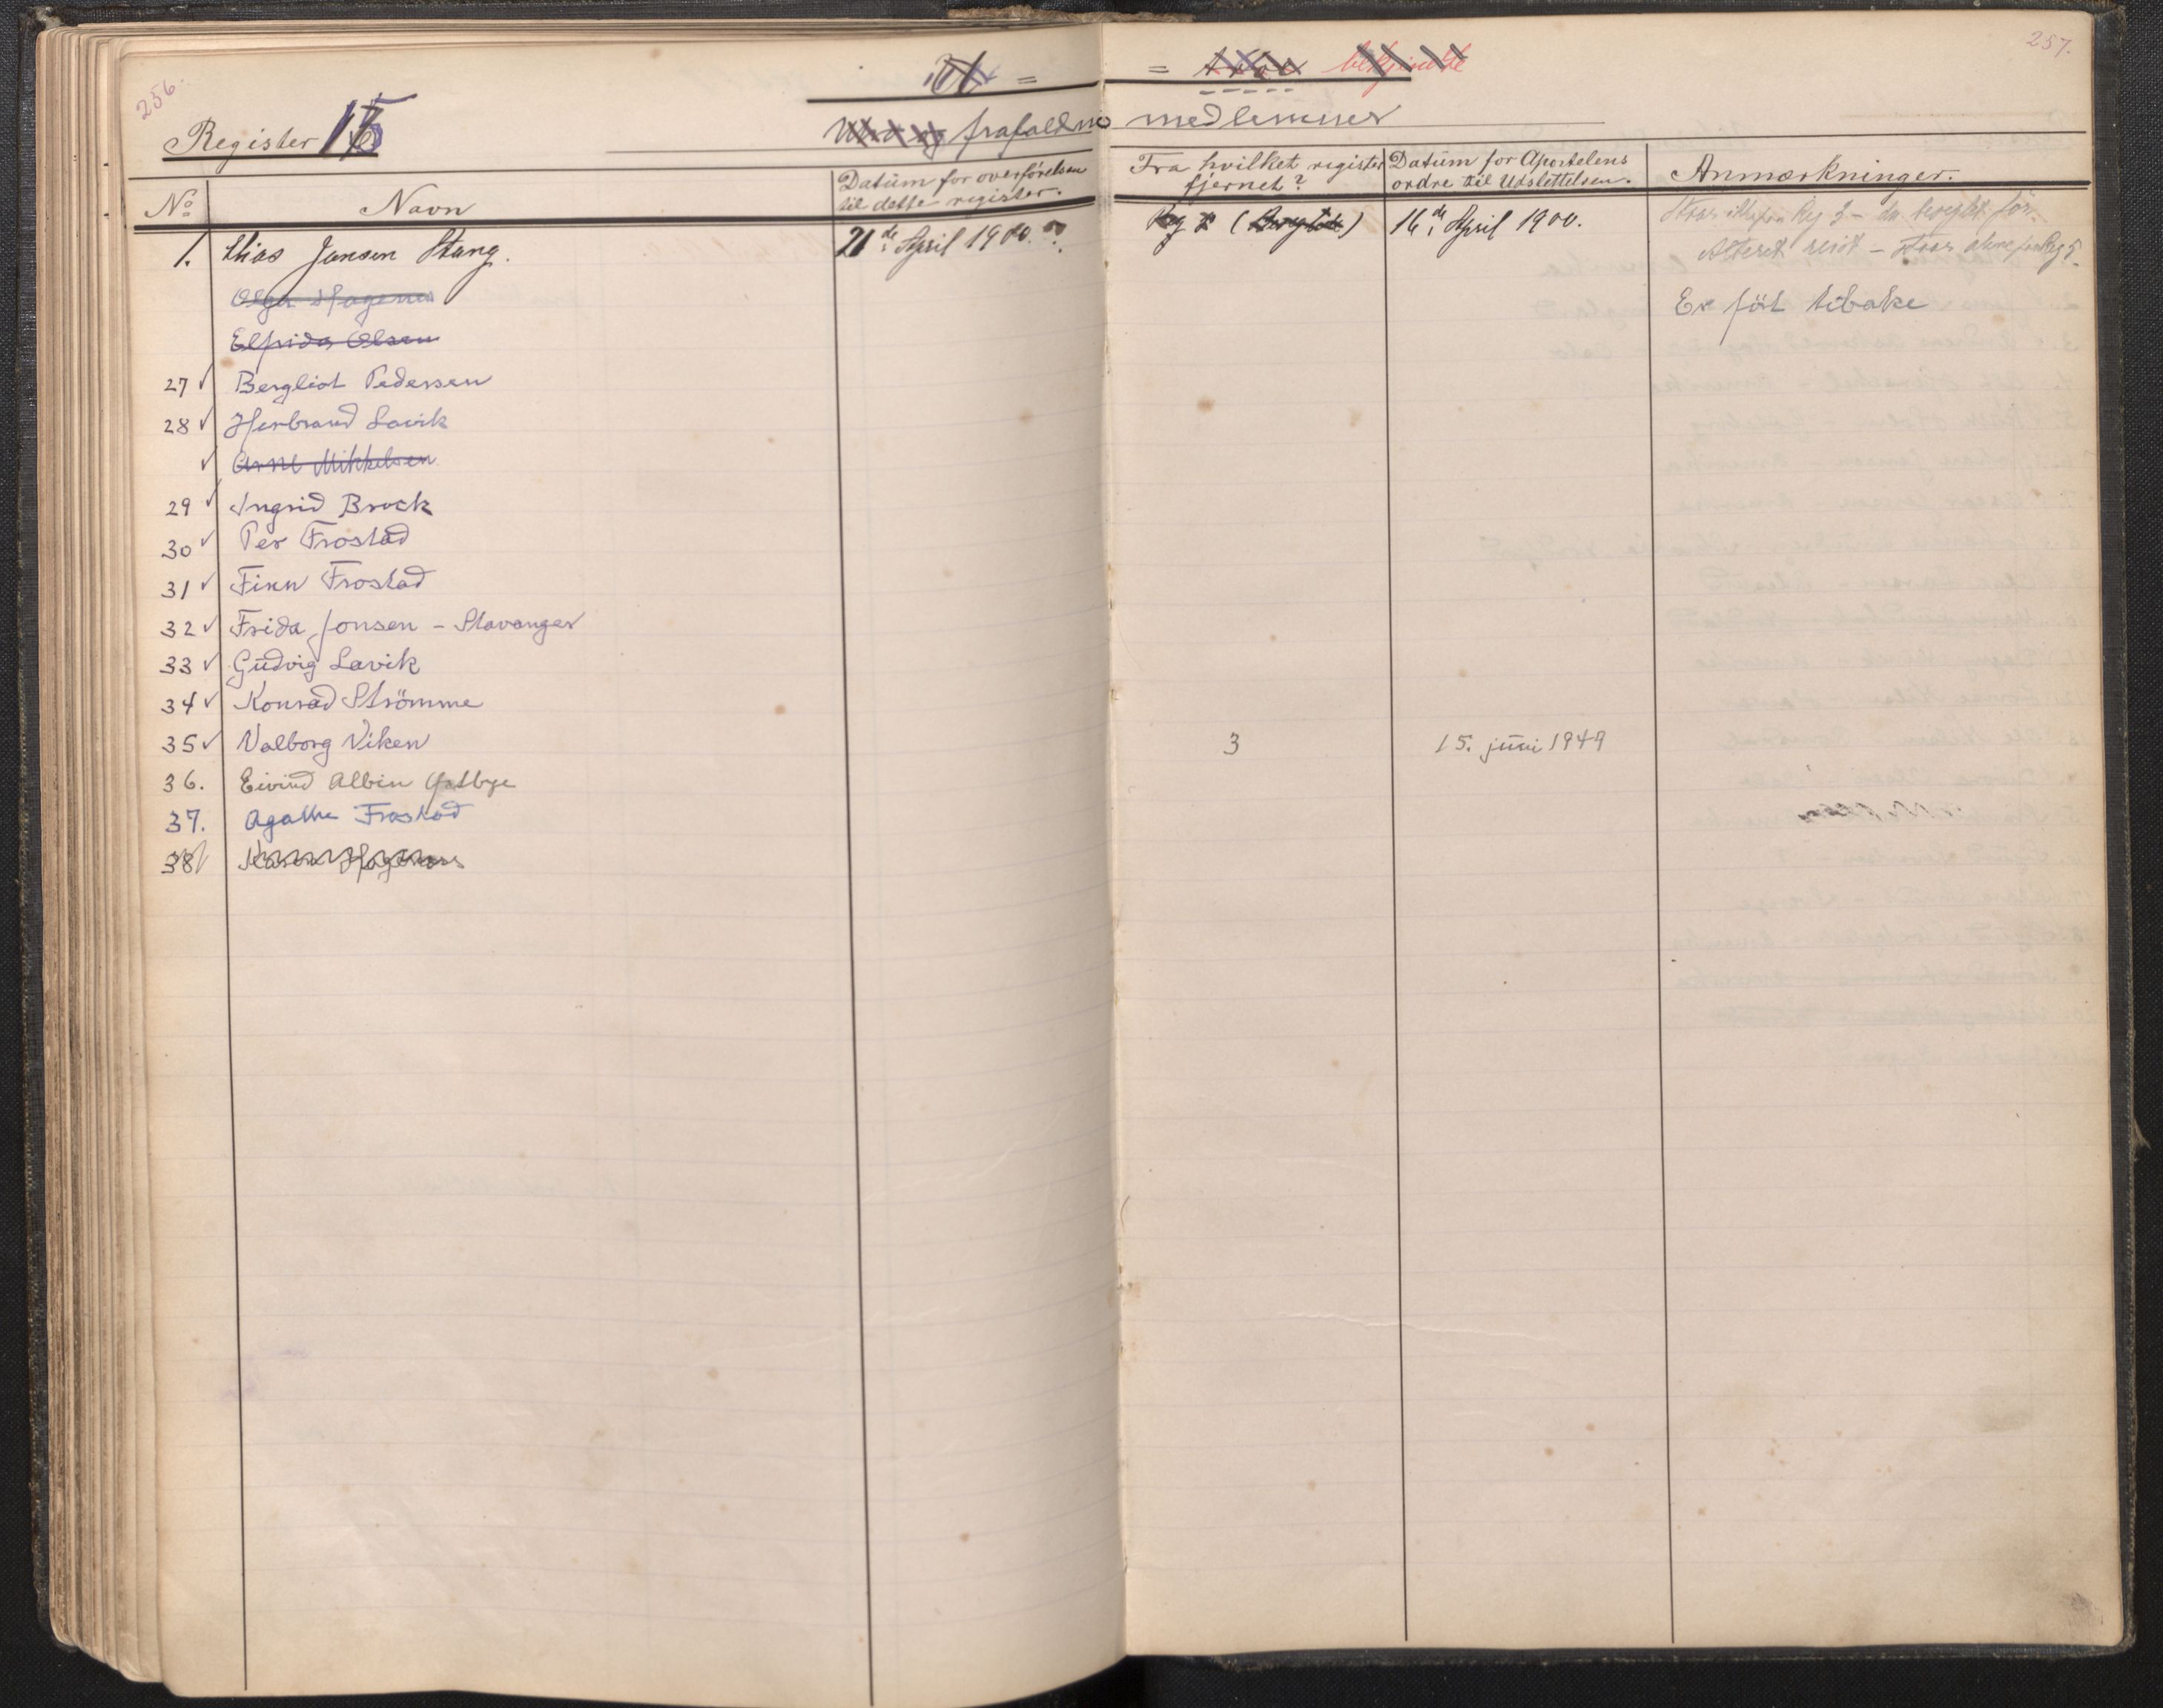 256.
257.
Register 15
frafaldne medlemmer
No
Navn
Datüm for overförelsen
til dette register.
Fra hvilket register
fjernet?
Datüm for Apostelens
ordre til Udslettelsen.
Anmærkninger.
1. Elias Jensen Stang. 21de April 1900. ? Reg 16de April 1900.
Olga Hagenes Er fört tibake
Elfrida Olsen
27 √ Bergliot Pedersen
28 √ Herbrand Lavik
√ Arne Mikkelsen
29 √ Ingrid Brock
30 √ Per Frostad
31 √ Finn Frostad
32 √ Frida Jonsen - Stavanger
33 √ Güdvig Lavik
34 √ Konrad Strömme
35 √ Valborg Viken 3 15. jüni 1949
36. Eivind Albin
37. Agathe Frostad
38 Hagenes